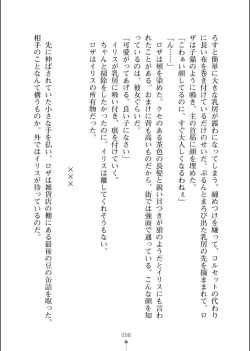 ろすと簡単に大きな乳房が露わになってしまう。締めつけを嫌って、コルセットの代わり
に長い布を巻き付けているだけのせいだ。ぷるんとまろび出た乳房の先を摘ままれて、ロ
ザは子猫のように鳴き、主の首筋に顔を埋めた。
「こわぁい顔してるのに、すぐ大人しくなるわねぇ」
ロザは頬を染めた。クセのある茶色の長髪と鋭い目つきが狼のようだとイリスにも言わ
れたことがある。おまけに背も高いものだから、街では強面で通っている。こんな顔を知
っているのは、彼女くらいだ。
「可愛がってあげる。いい子になあれ」
イリスが乳房に吸い付き、痕を付けていく。
ちゃんと掃除をしたかったのに、イリスは離してくれそうにない。
ロザはイリスの所有物だった。
×××
先に伸ばされていた小さな手を払い、ロザは雑貨店の棚にある最後の豆の缶詰を取った。
相手のことなんて構うものか、外ではイリスが待っているのだ。
008